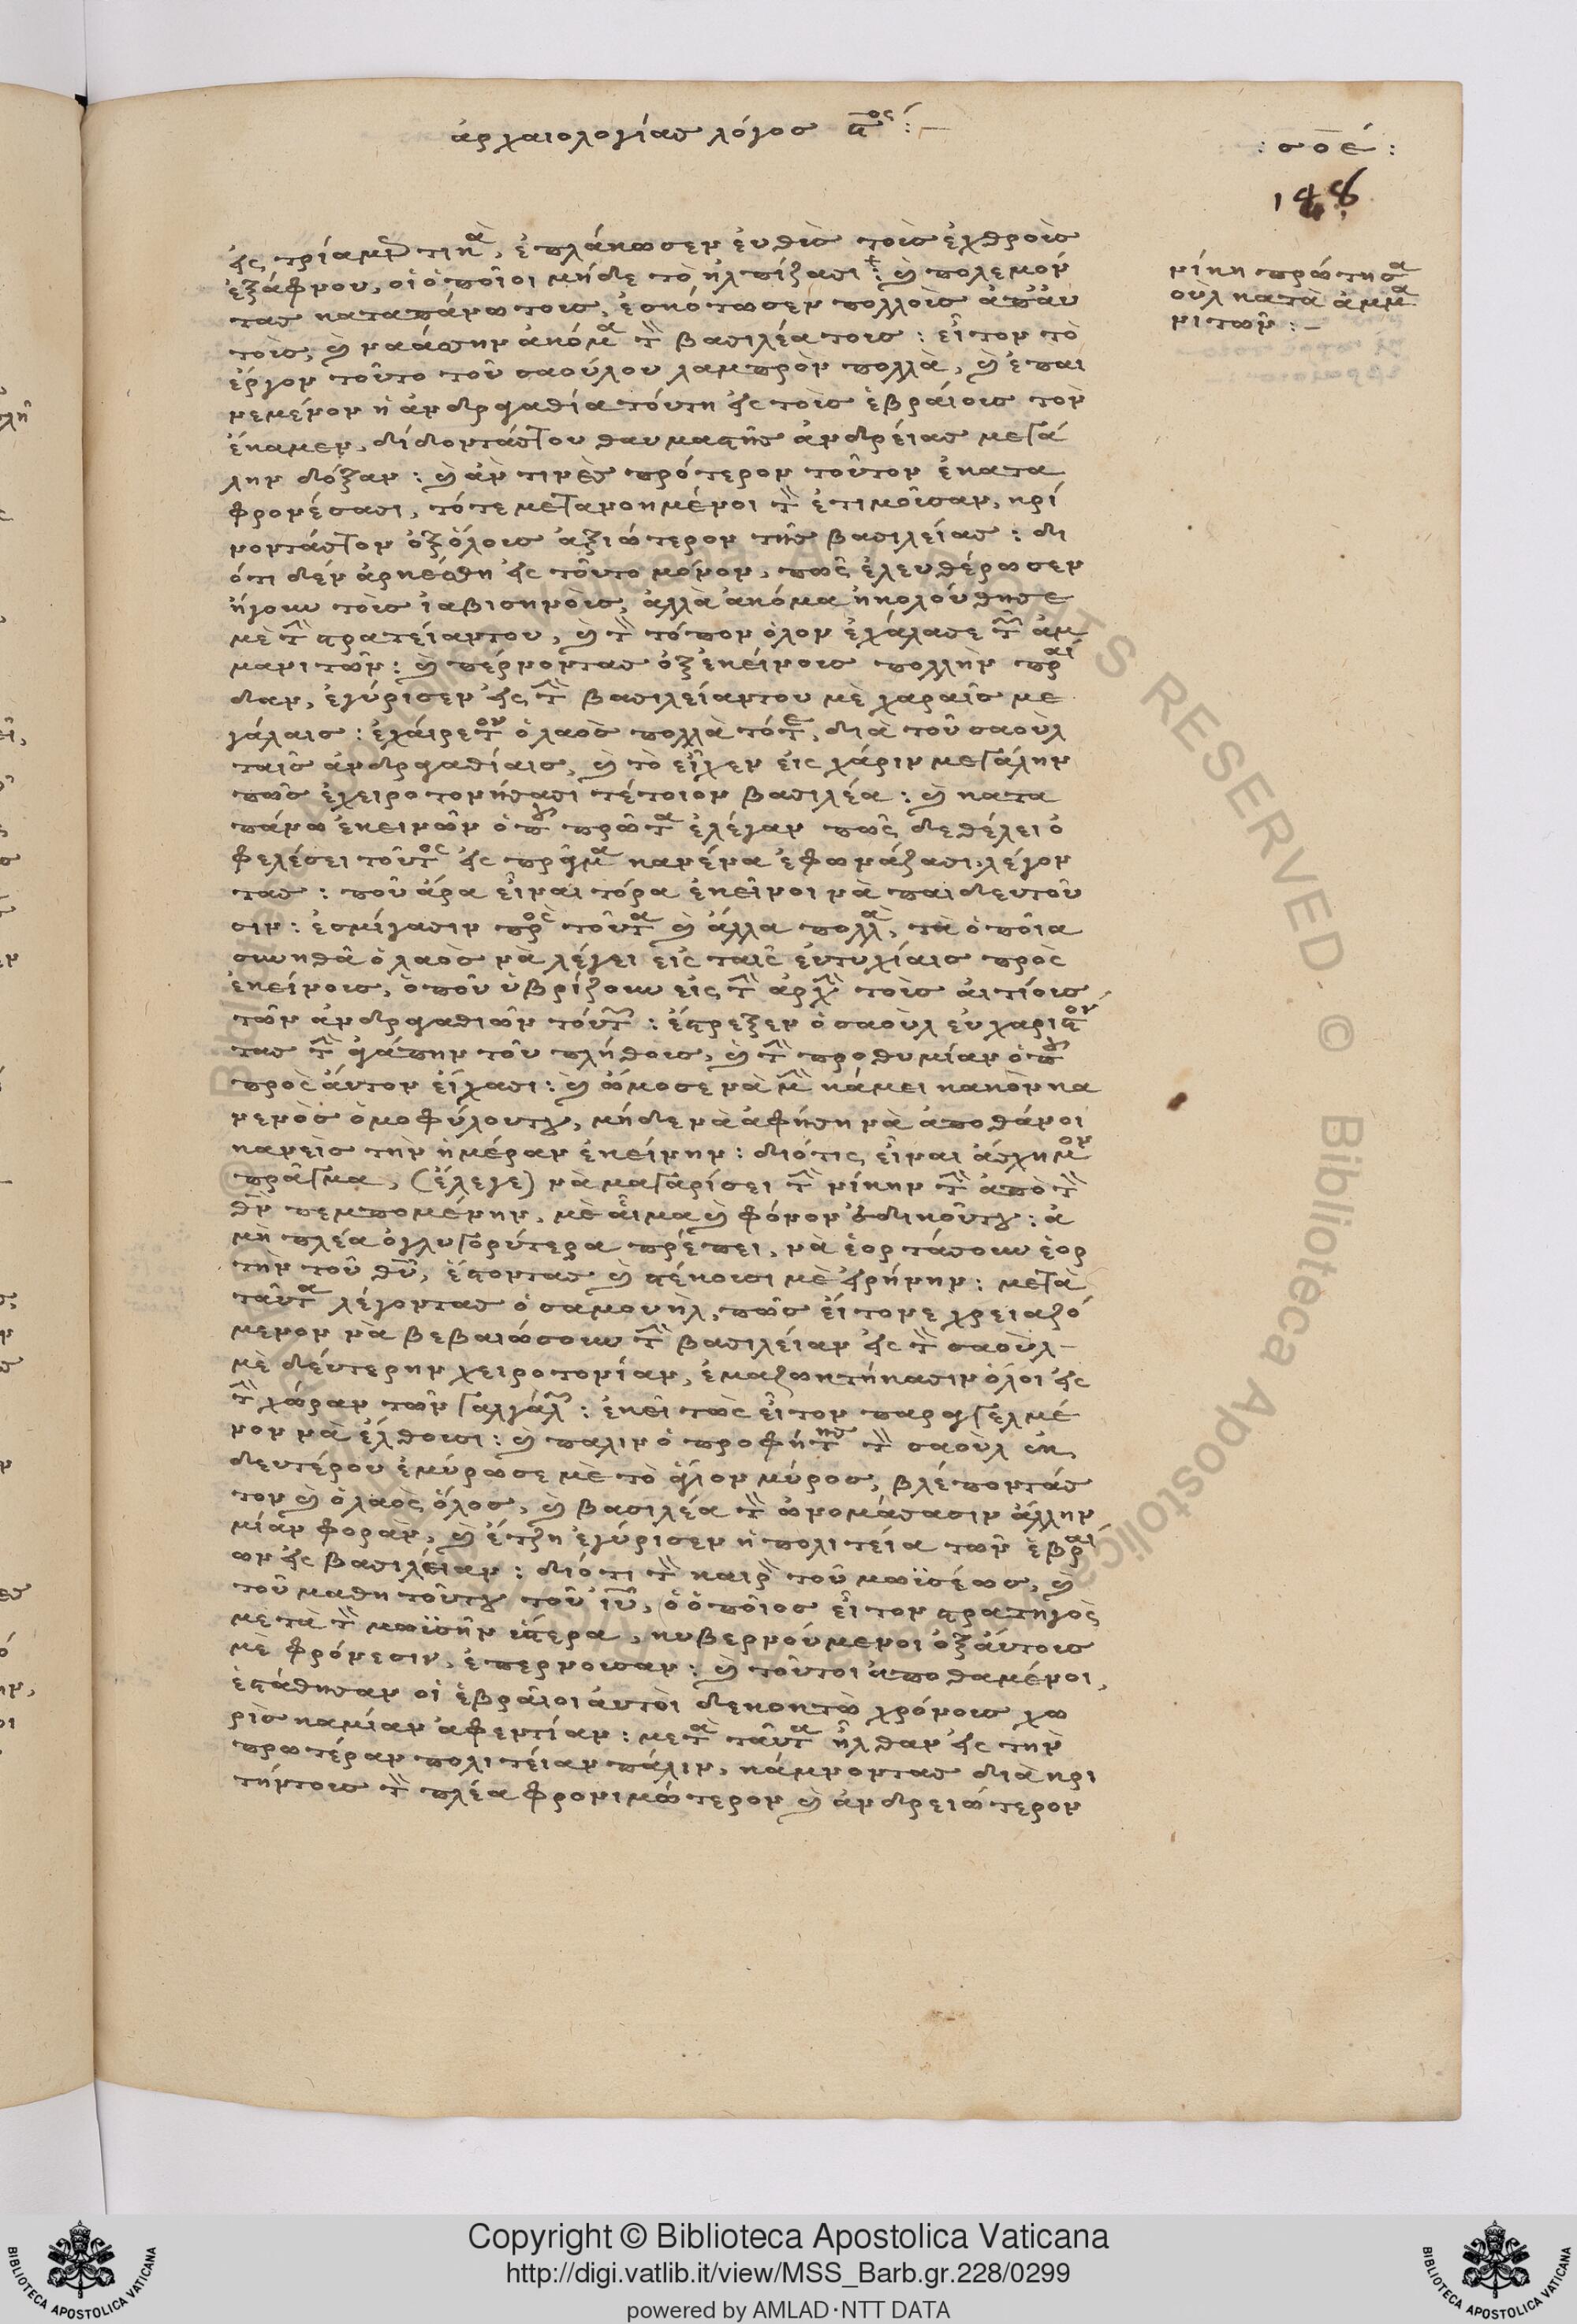 ἀρχαιολογίας λόγος ϛ^ος :—
: σοε :
148
εἰς τρία μέρη τινὰ, ἐπλάκωσεν εὐθὺς τοὺς ἐχθροὺς
ἐξάφνου, οἱ ὁποῖοι μήδε τὸ ἠλπίζασι : καὶ πολεμόν
τας καταπάνω τους, ἐσκότωσεν πολλοὺς ἀπ' αὐ
τοὺς, καὶ ναάσην ἀκόμα τὸν βασιλέα τους : εἶτον τὸ
ἔργον τοῦτο τοῦ σαούλου λαμπρὸν πολλὰ, καὶ ἐπαι
νεμένον ἡ ἀνδραγαθία τούτη εἰς τοὺς ἑβραίους τον
ἔκαμεν, δίδοντάς του θαυμαστῆς ἀνδρείας μεγά
λην δόξαν : καὶ ἂν τινὲς πρότερον τοῦτον ἐκατα
φρονέσασι, τότε μετανοημένοι τὸν ἐτιμοῦσαν, κρί
νοντάς τον ὀξ ὅλους ἀξιώτερον τῆς βασιλείας : δι
ότι δὲν ἀρκέσθη εἰς τοῦτο μόνον, πῶς ἐλευθέρωσεν
ἤγουν τοὺς ἰαβισηνοὺς, ἀλλὰ ἀκόμα ἠκολούθησε
μὲ τὴν στρατείαν του, καὶ τὸν τόπον ὅλον ἐχάλασε τῶν ἀμ
μανιτῶν : καὶ πέρνοντας ὀξ ἐκείνους πολλὴν πραί
δαν, ἐγύρισεν εἰς τὴν βασιλείαν του μὲ χαραῖς με
γάλαις : ἐχαίρετον ὁ λαὸς πολλὰ τότε, διὰ τοῦ σαοὺλ
ταῖς ἀνδραγαθίαις, καὶ τὸ εἶχεν εἰς χάριν μεγάλην
πῶς ἐχειροτονήσασι τέτοιον βασιλέα : καὶ κατα
πάνω ἐκεινῶν ὁποῦ πρῶτα ἐλέγαν πῶς δε θέλει ὀ
φελέσει τοῦτος εἰς πρᾶγμα κανένα ἐφωνάζασι, λέγον
τας : ποῦ ἄρα εἶναι τόρα ἐκεῖνοι νὰ παιδευτοῦ
σιν : ἐσμίγασιν πρὸς τοῦτα καὶ ἄλλα πολλὰ, τὰ ὁποῖα
συνηθᾶ ὁ λαὸς νὰ λέγει εἰς ταῖς εὐτυχίαις πρὸς
ἐκείνους, ὁποῦ ὑβρίζουν εἰς τὴν ἀρχὴν τοὺς αἰτίους
τῶν ἀνδραγαθιῶν τούτων : ἔστρεξεν ὁ σαοὺλ εὐχαριστόν
τας τὴν ἀγάπην τοῦ πλήθους, καὶ τὴν προθυμίαν ὁποῦ
πρὸς αὐτον εἴχασι : καὶ ὤμοσε νὰ μὴν κάμει κακὸν κα
νενὸς ὁμοφύλου του, μήδε νὰ ἀφήση νὰ ἀποθάνοι
κανεὶς τὴν ἡμέραν ἐκείνην : διότις εἶναι ἄσχημον
πρᾶγμα, (ἔλεγε) νὰ μαγαρίσει τὴν νίκην τὴν ἀπὸ τὸν
θν πεμπομένην, μὲ αἷμα καὶ φόνον ἐδικοῦ του : ἀ
μὴ πλέα ὀγλυγορύτερα πρέπει, νὰ ἑορτάσουν ἑορ
τὴν τοῦ θῦ, ἔστοντας καὶ στέκουσι μὲ εἰρήνην : μετὰ
ταῦτα λέγοντας ὁ σαμουὴλ, πῶς εἶτονε χρειαζό
μενον νὰ βεβαιώσουν τὴν βασιλείαν εἰς τὸν σαοὺλ
μὲ δεύτερην χειροτονίαν, ἐμαζωκτήκασιν ὅλοι εἰς
τὴν χώραν τῶν γαλγάλων : ἐκεῖ τὼς εἶτον παραγγελμέ
νον νὰ ἔλθουσι : καὶ παλιν ὁ προφήτης τὸν σαοὺλ ἐκ
δευτέρου ἐμύρωσε μὲ τὸ ἅγιον μύρος, βλέποντάς
τον καὶ ὁ λαὸς ὅλος, καὶ βασιλέα τὸν ὠνομάσασιν ἄλλην
μίαν φορὰν, καὶ ἔτζη ἐγύρισεν ἡ πολιτεία τῶν ἑβραί
ων εἰς βασιλείαν : διότι τὸν καιρὸν τοῦ μωϊσέως, καὶ
τοῦ μαθητοῦ του τοῦ ἰῦ, ὁ ὁποῖος εἶτον στρατηγὸς
μετὰ τὸν μωϊσῆν ὕστερα, κυβερνούμενοι ὀξ αὐτους
μὲ φρόνεσιν, ἐπερνουσαν : καὶ τοῦτοι ἀποθαμένοι,
ἐστάθησαν οἱ ἑβραῖοι αὐτοὶ δεκοκτὼ χρόνους χω
ρὶς καμίαν ἀφεντίαν : μετὰ ταῦτα ἦλθαν εἰς τὴν
πρωτέραν πολιτείαν πάλιν, κάμνοντας διὰ κρι
τήν τους τὸν πλέα φρονιμώτερον καὶ ἀνδρειώτερον
νίκη πρώτη σα
οὺλ κατὰ ἀμμα
νιτῶν : —
Copyright © Biblioteca Apostolica Vaticana
http://digi.vatlib.it/view/MSS_Barb.gr.228/0299
powered by AMLAD·NTT DATA